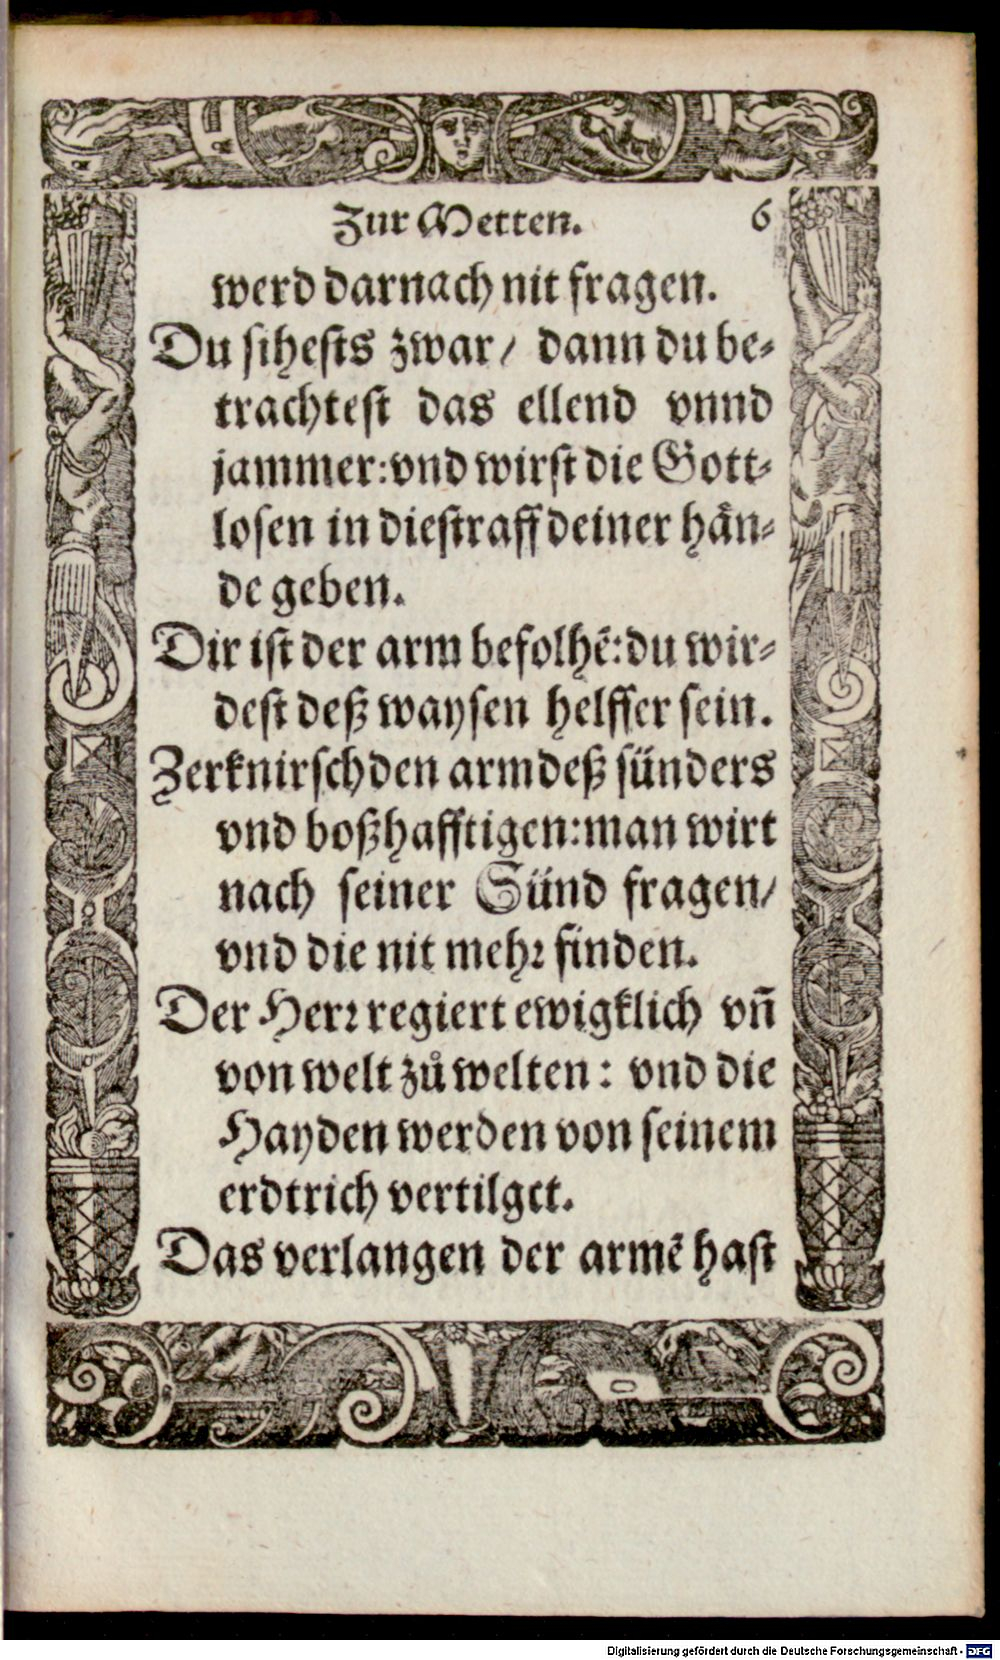 Zur Metten. 6
werd darnach nit fragen.
Du sihests zwar/ dann du be-
trachtest das ellend vnnd
jammer: vnd wirst die Gott-
losen in die straff deiner hän-
de geben.
Dir ist der arm befolhẽ: du wir-
dest deß waysen helffer sein.
Zerknirsch den arm deß sünders
vnd boßhafftigen: man wirt
nach seiner Sünd fragen/
vnd die nit mehr finden.
Der Herr regiert ewigklich vñ
von welt zů welten: vnd die
Hayden werden von seinem
erdtrich vertilget.
Das verlangen der armẽ hast
Digitalisierung gefördert durch die Deutsche Forschungsgemeinschaft - DFG